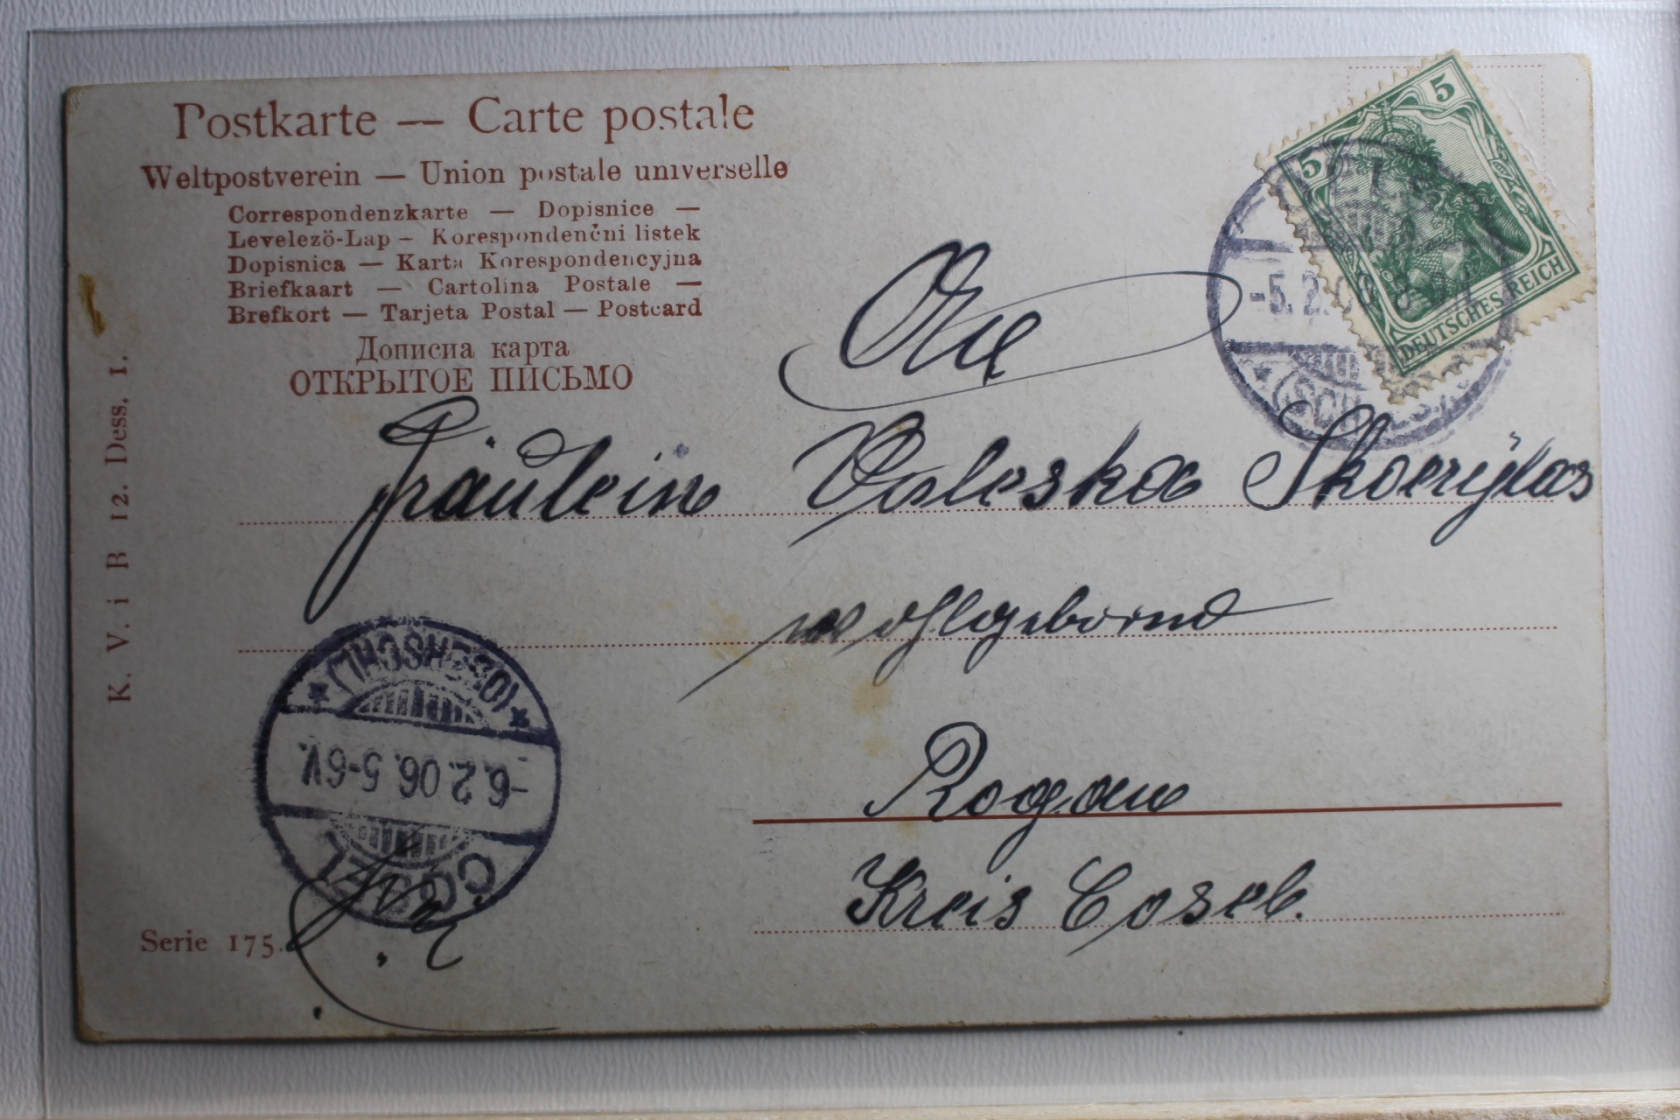 Postkarte — Carte postale
Weltpostverein — Union postale universelle
Correspondenzkarte — Dopisnice —
Levelezö-Lap — Korespondenčni listek
Dopisnica — Karta Korespondencyjna
Briefkaart — Cartolina Postale —
Brefkort — Tarjeta Postal — Postcard
Дописна карта
ОТКРЫТОЕ ПИСЬМО
K. V. i B 12. Dess. 1.
5 5
DEUTSCHES REICH
-5.2.
An
Fräulein Valeska
wohlgeborend
Rogau
Kreis Cosel.
COSEL
-6.2.06.5-6V.
Serie 175.